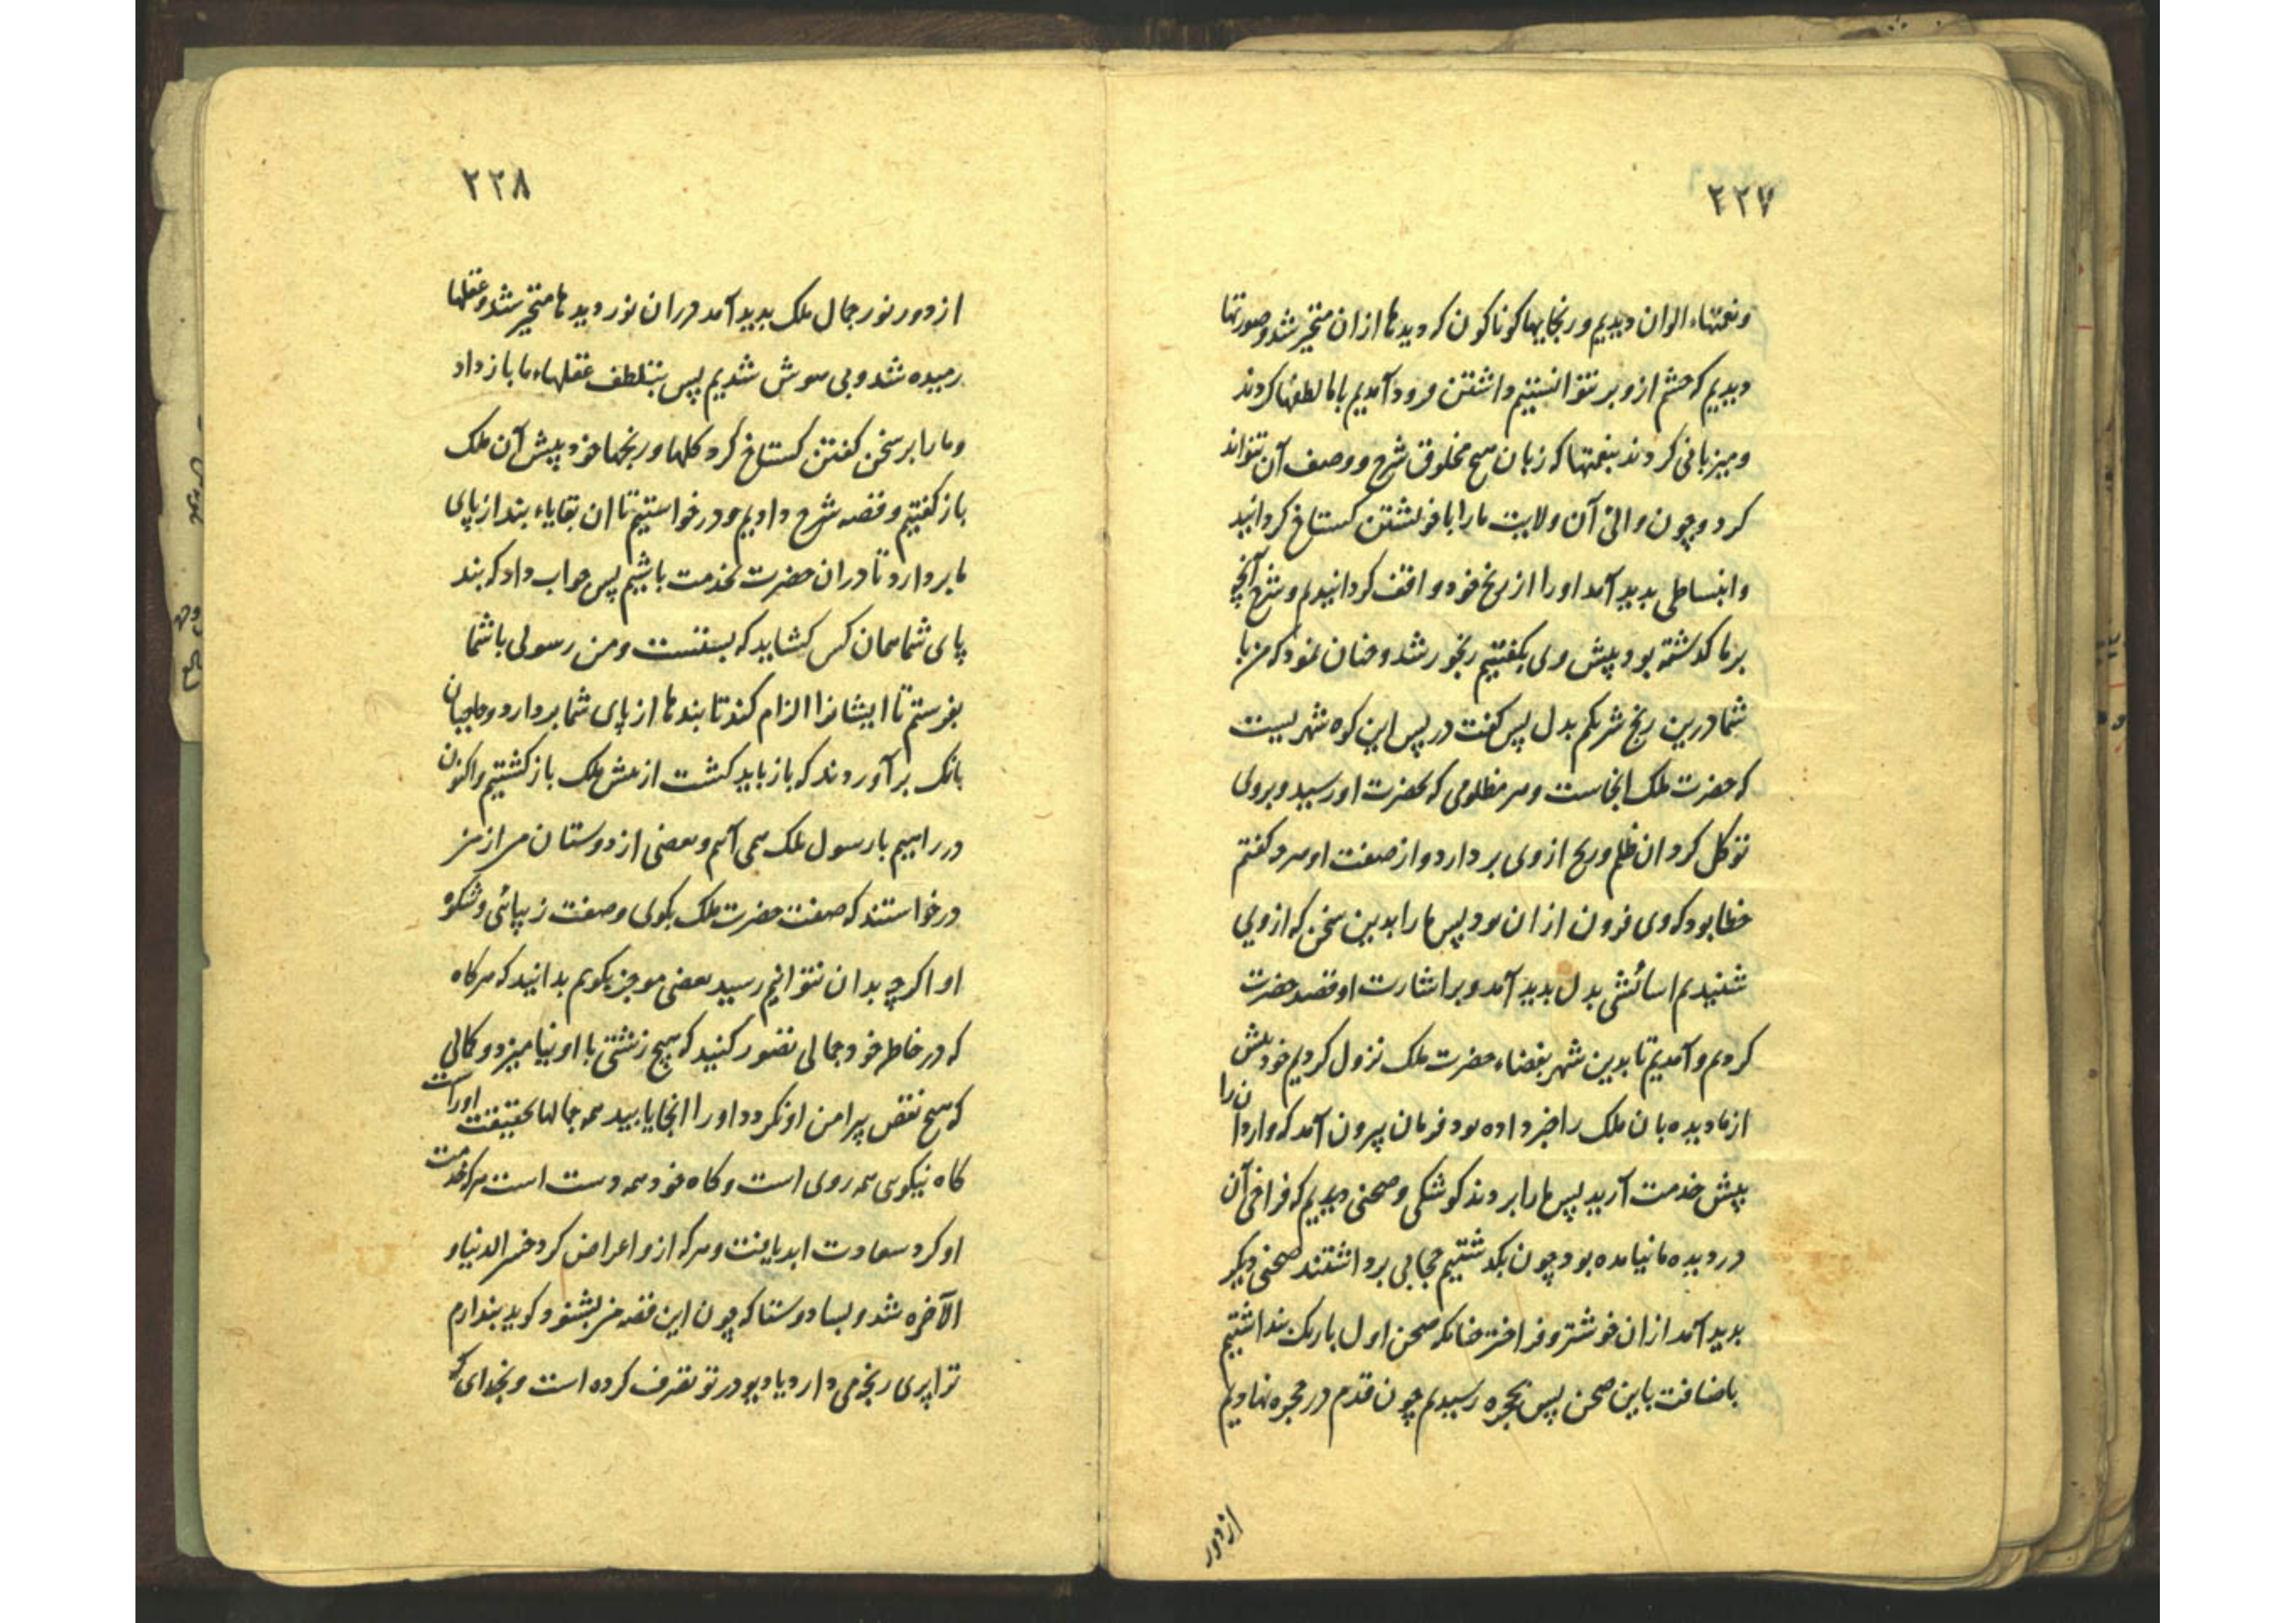 ۲۲۷
ونعمتهاء الوان دیدیم ورنجایبها کوناکون که دیدها ازان متحیر شد وصورتها
دیدیم که چشم ازو بر نتوانستیم داشتن فرود آمدیم باما لطفها کردند
ومیزبانی کردند بنعمتها که زبان هیچ مخلوق شرح ووصف آن نتواند
کرد وچون والی آن ولایت مارا با خویشتن کستاخ کردانید
وانبساطی بدید آمد اورا از رنج خود واقف کردانیدیم وشرح آنچه
برما کذشته بود پیش وی بکفتیم رنجور شد وچنان نمود که من با
شما درین رنج شریکم بدل پس کفت در پس این کوه شهریست
که حضرت ملک انجاست وهر مظلومی که بحضرت او رسید وبروی
توکل کرد ان ظلم ورنج از وی بردارد واز صفت او هرچه کفتم
خطا بود که وی فزون ازان بود پس مارا بدین سخن که از وی
شنیدیم اسائشی بدل بدید آمد وبر اشارت او قصد حضرت
کردیم وآمدیم تا بدین شهر بفضاء حضرت ملک نزول کردیم خود پیش
از ما دیده بان ملک را خبر داده بود فرمان بیرون آمد که واردان را
پیش خدمت آرید پس مارا بردند کوشکی وصحنی دیدیم که فراخی آن
در دیده ما نیامده بود چون بکذشتیم حجابی برداشتند صحنی دیکر
بدید آمد ازان خوشتر وفراختر چنانکه صحن اول تاریک بنداشتیم
باضافت باین صحن پس بحجره رسیدیم چون قدم در حجره نهادیم
از دور
۲۲۸
از دور نور جمال ملک بدید آمد دران نور دیدها متحیر شد وعقلها
رمیده شد وبی هوش شدیم پس بتلطف عقلهاء ما باز داد
ومارا بر سخن کفتن کستاخ کرد کلها ورنجها خود پیش آن ملک
باز کفتیم وقصه شرح دادیم ودر خواستیم تا ان بقایاء بند از پای
ما بردارد تا دران حضرت بخدمت باشیم پس جواب داد که بند
پای شما همان کس کشاید که بستست ومن رسولی باشما
بفرستم تا ایشانرا الزام کند تا بندها از پای شما بردارد وحاجیان
بانک برآوردند که باز باید کشت از پیش ملک باز کشتیم واکنون
در راهیم با رسول ملک همی آئیم وبعضی از دوستان من از من
درخواستند که صفت حضرت ملک بکوی وصفت زیبائی وشکوه
او اکرچه بدان نتوانیم رسید بعضی موجز بکویم بدانید که هرکاه
که در خاطر خود جمالی تصور کنید که هیچ زشتی با او نیامیزد وکمالی
که هیچ نقص پیرامن او نکردد اورا انجا یابید همه جمالها بحقیقت اوراست
کاه نیکوی همه روی است وکاه خود همه دست است هرکه خدمت
او کرد سعادت ابد یافت وهرکه ازو اعراض کرد خسر الدنیا و
الآخره شد وبسا دوستا که چون این قصه من بشنود کوید بندارم
ترا پری رنجه می دارد یا دیو در تو تصرف کرده است وبخدای که